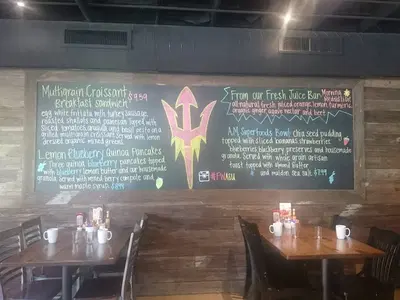 Multigrain Croissant $9.59
Breakfast Sandwich
egg white frittata with turkey sausage,
roasted shallots and parmesan topped with
sliced tomatoes, arugula and basil pesto on a
grilled multigrain croissant. Served with a
organic mixed greens
Lemon Blueberry Quinoa Pancakes
Three quinoa, blueberry pancakes topped
with blueberries and our housemade
granola. Served with berry compote and
warm maple syrup $8.99
From our Fresh Juice Bar
Morning
all natural fresh sliced orange, lemon, turmeric
organic ginger agave nectar and beet
A.M. Superfoods Bowl chia seed pudding
topped with sliced bananas, strawberries
blueberries, blackberry preserves and housemade
granola. Served with whole grain artisan
toast topped with almond butter
and maldon sea salt $7.99